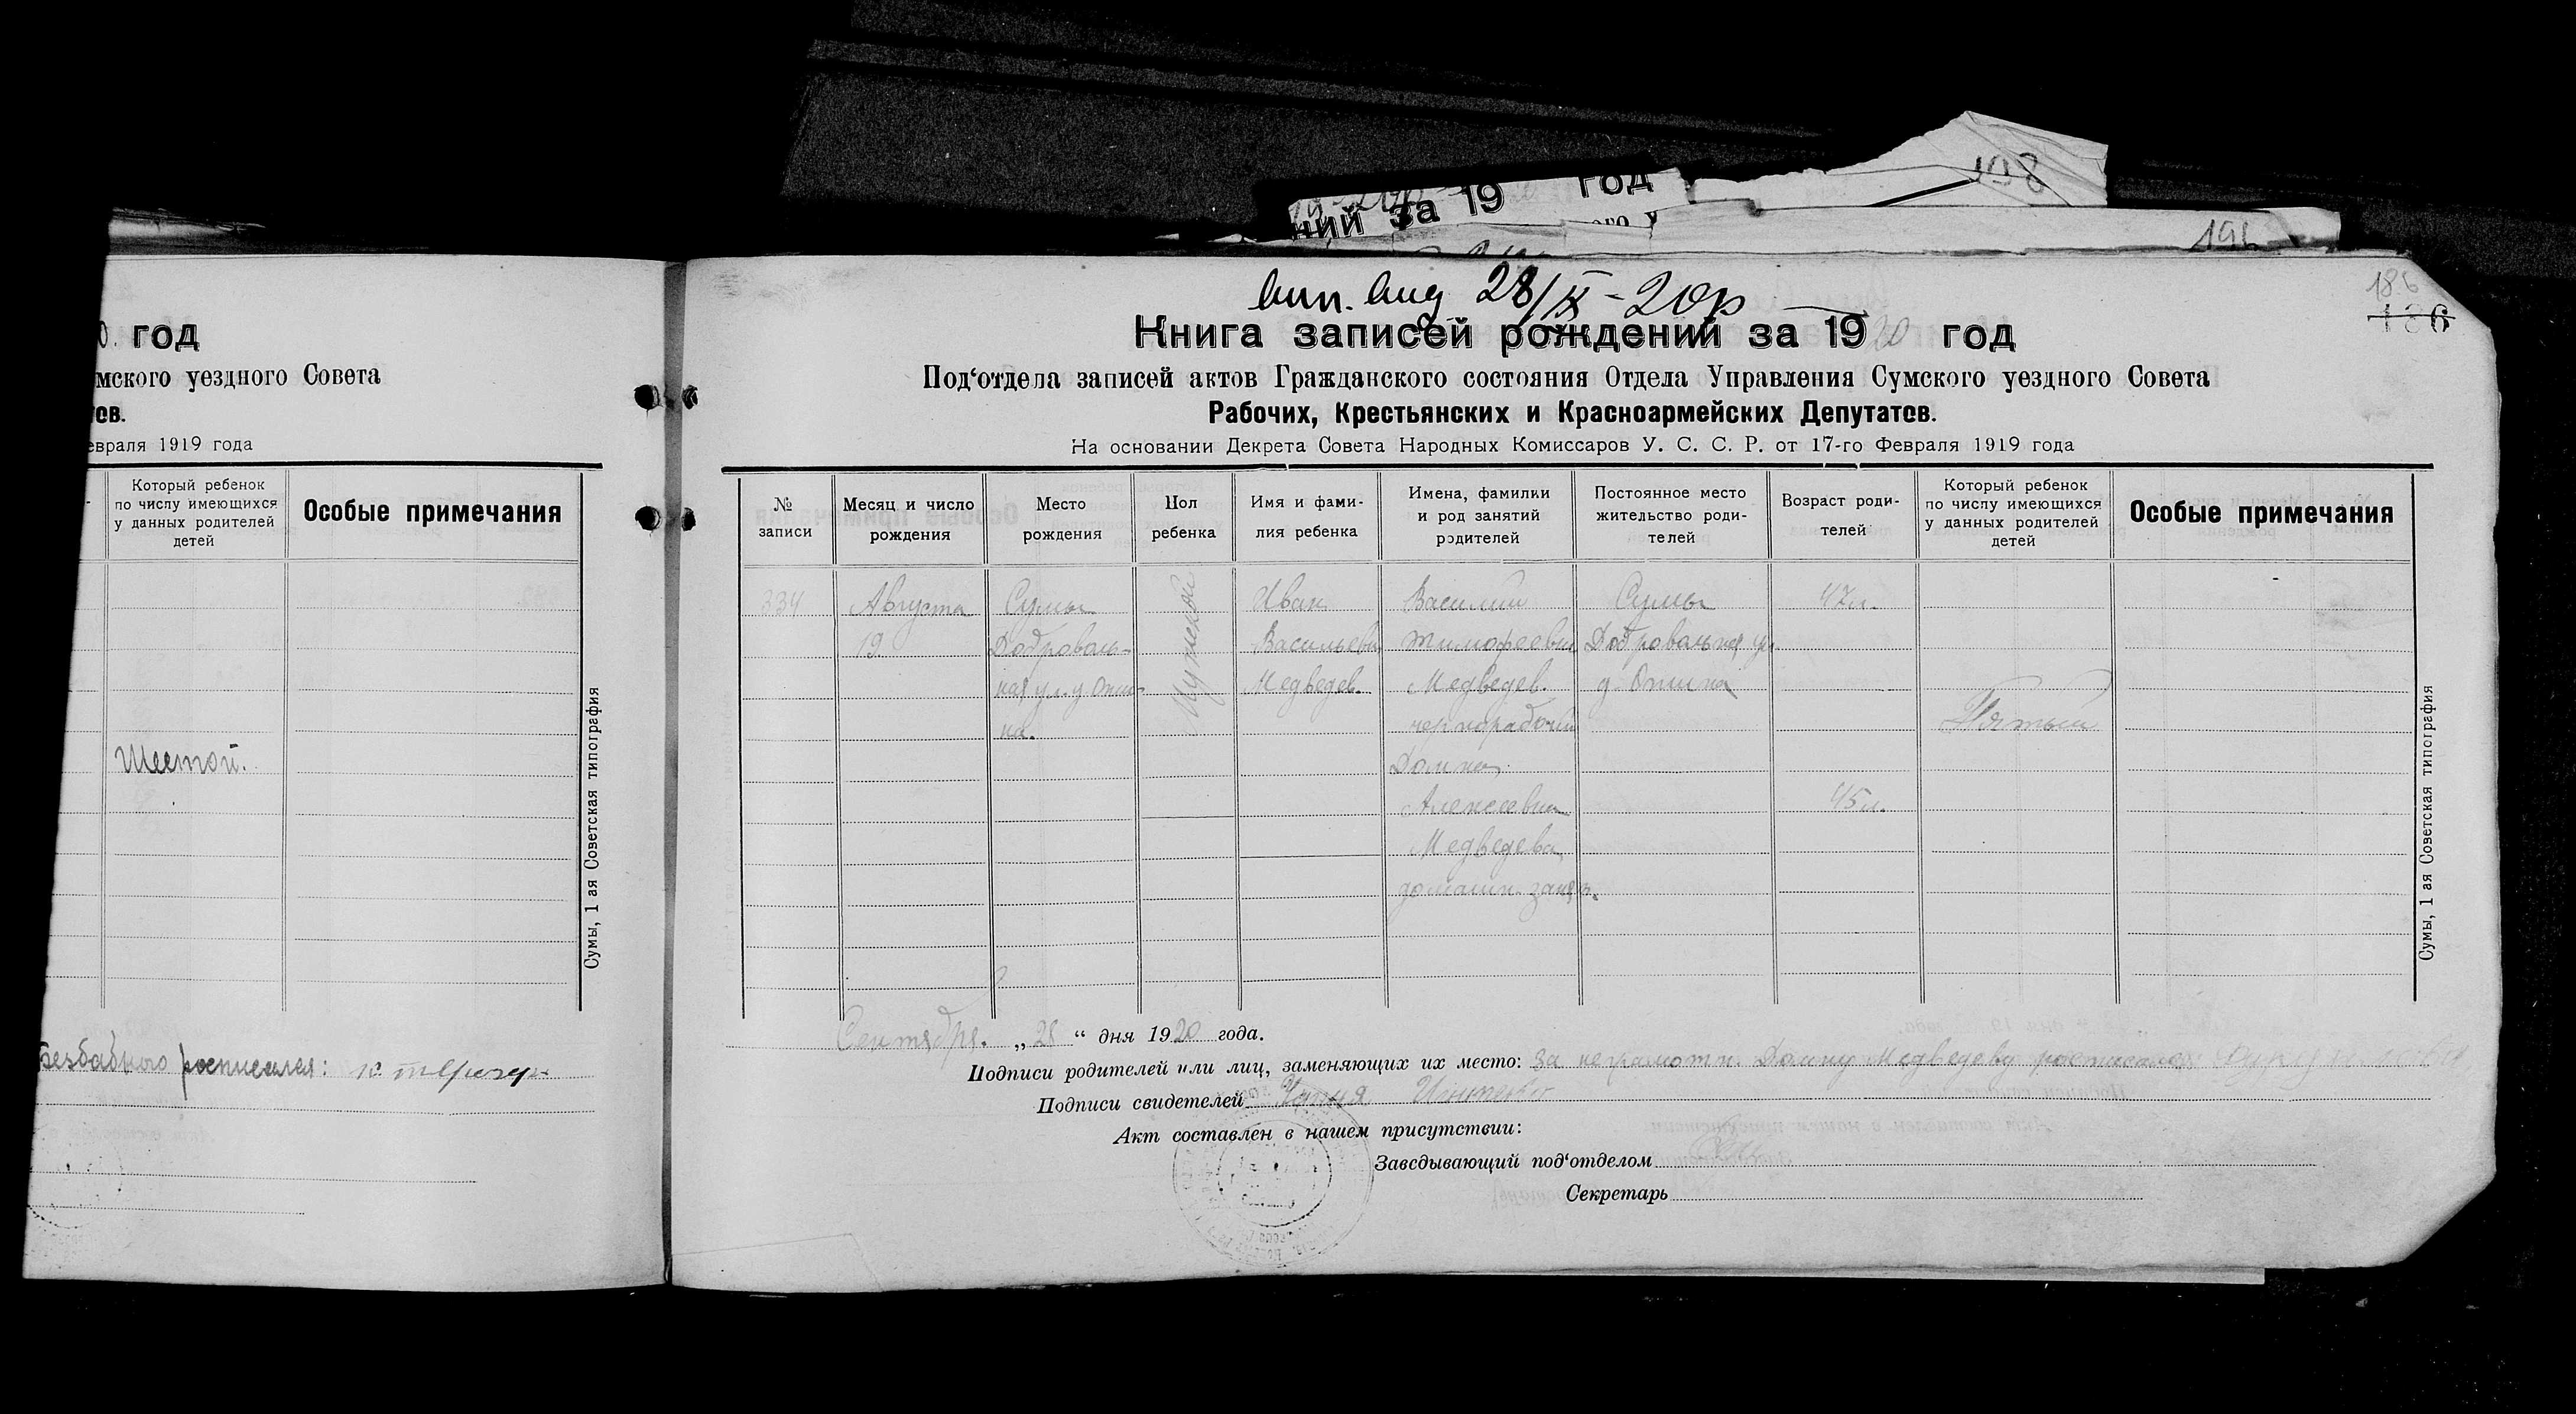 198
ний за 19 год
ого у
196
0. год
мского уездного Совета
тов.
евраля 1919 года
Который ребенок
по числу имеющихся
у данных родителей
детей
Особые примечания
Шестой.
Сумы, 1 ая Советская типография
росписался:
28/IX-20р
186
186
Книга записей рождений за 1920 год
Под‘отдела записей актов Гражданского состояния Отдела Управления Сумского уездного Совета
Рабочих, Крестьянских и Красноармейских Депутатов.
На основании Декрета Совета Народных Комиссаров У. С. С. Р. от 17-го Февраля 1919 года
№
записи
Месяц и число
рождения
Место
рождения
Пол
ребенка
Имя и фами-
лия ребенка
Имена, фамилии
и род занятий
родителей
Постоянное место
жительство роди-
телей
Возраст роди-
телей
Который ребенок
по числу имеющихся
у данных родителей
детей
Особые примечания
334
Августа
19
Сумы
Добороволь-
ная ул. д. Опиш-
на.
Мужской
Иван
Васильевич
Медведев.
Василий
Тимофеевич
Медведев.
чернорабочий
Домна
Алексеевна
Медведева
домашн. занят.
Сумы
Добровольная ул.
д. Опишна
47л.
45л.
Пятый
Сумы, 1 ая Советская типография
Сентября. „28“ дня 1920 года.
Подписи родителей или лиц, заменяющих их место: за неграмотн. Домну Медведеву росписалась
Подписи свидетелей
Акт составлен в нашем присутствии:
Заведывающий под‘отделом
Секретарь